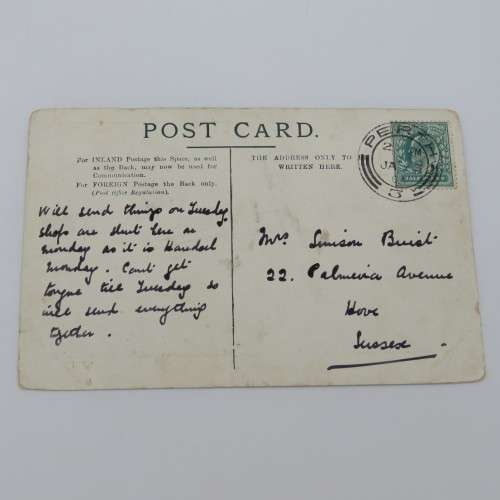 POST CARD.
For INLAND Postage this Space, as well
as the Back, may now be used for
Communication.
For FOREIGN Postage the Back only.
(Post Office Regulation).
THE ADDRESS ONLY TO
WRITTEN HERE.
PERTH
JA
Will send things on Tuesday
shops are shut here as
Monday as it is Handsel
Monday. Can't get
tongue till Tuesday so
will send everything
together.
Mrs Simson Buist
22. Palmeira Avenue
Hove
Sussex